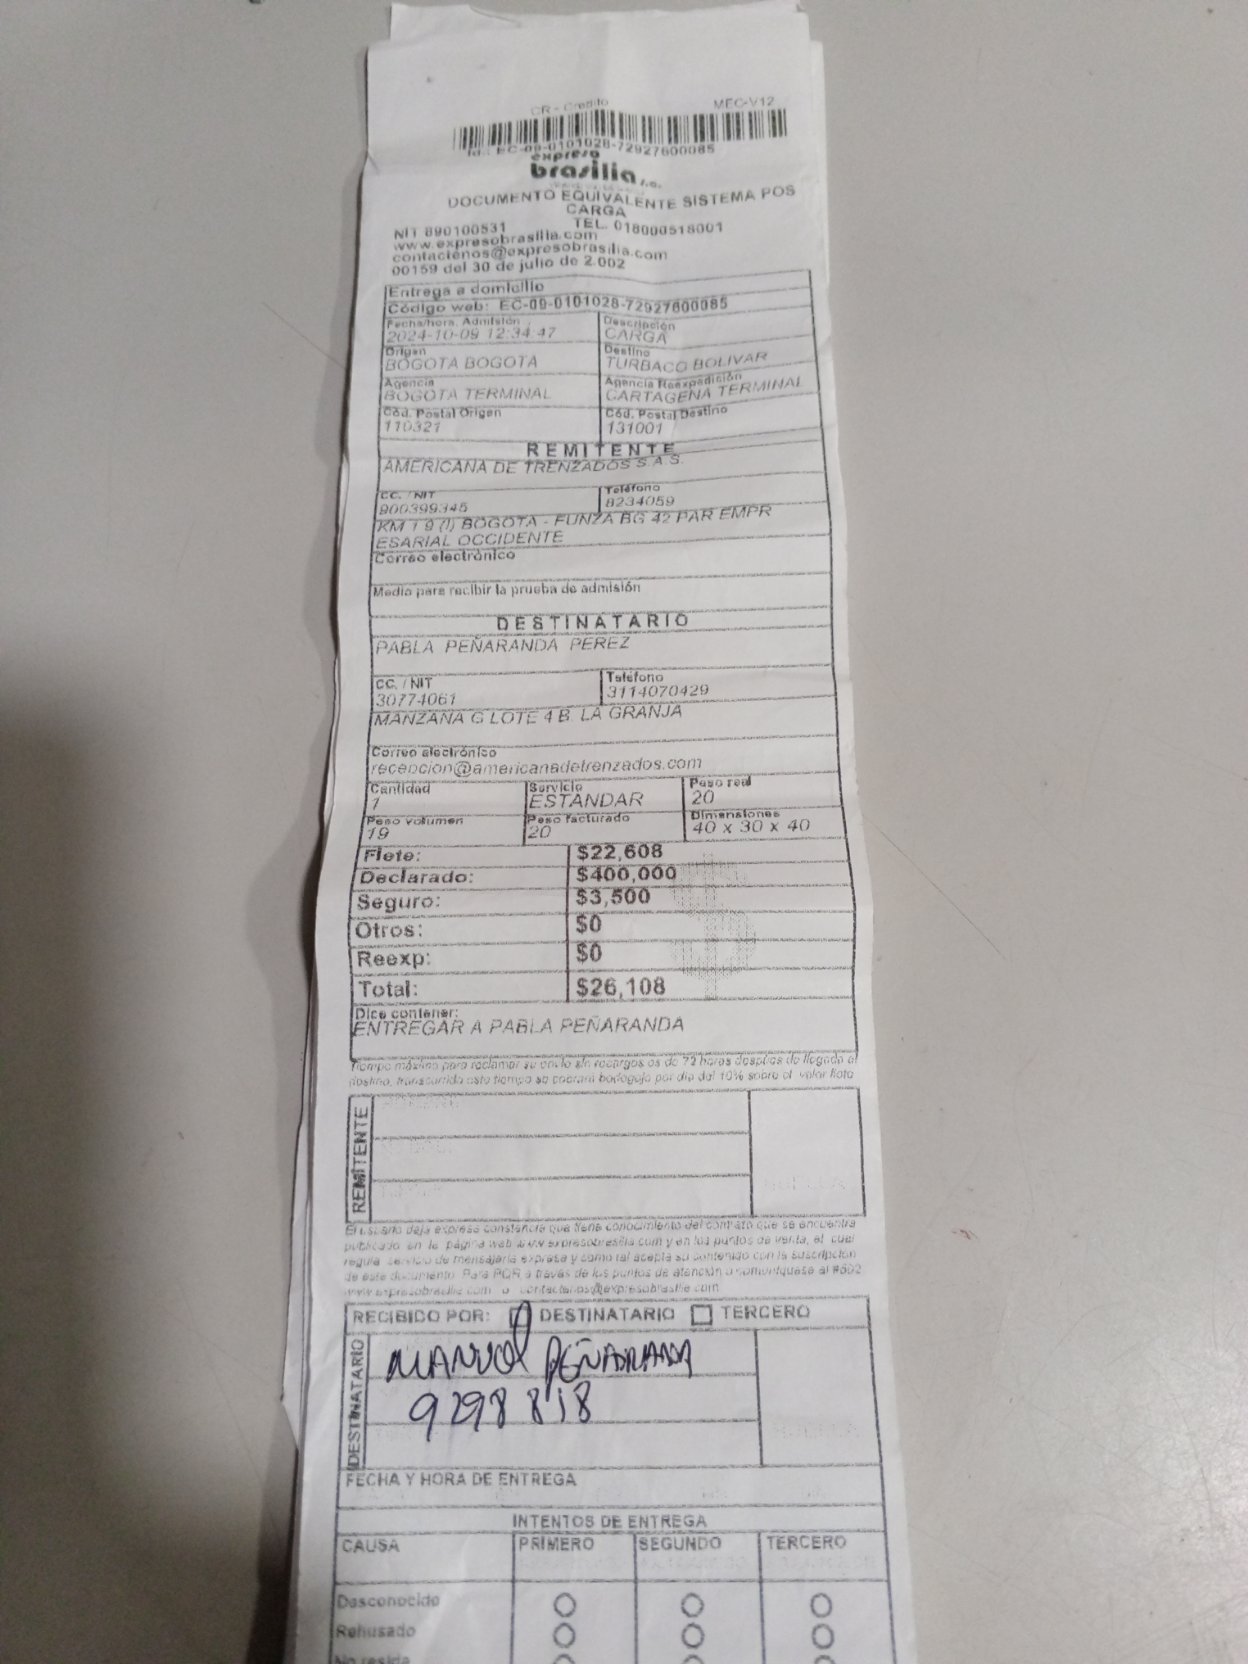 CR - Credito MEC-V12
Id.: EC-09-0101028-72927600085
expreso
brasilia s.a.
DOCUMENTO EQUIVALENTE SISTEMA POS
CARGA
NIT 890100531 TEL. 018000518001
www.expresobrasilia.com
contactenos@expresobrasilia.com
00159 del 30 de julio de 2.002
Entrega a domicilio
Código web: EC-09-0101028-72927600085
Fecha/hora. Admisión Descripción
2024-10-09 12:34:47 CARGA
Origen Destino
BOGOTA BOGOTA TURBACO BOLIVAR
Agencia Agencia Reexpedición
BOGOTA TERMINAL CARTAGENA TERMINAL
Cód. Postal Origen Cód. Postal Destino
110321 131001
REMITENTE
AMERICANA DE TRENZADOS S.A.S.
CC. / NIT Teléfono
900399345 8234059
KM 1 9 (I) BOGOTA - FUNZA BG 42 PAR EMPR
ESARIAL OCCIDENTE
Correo electrónico
Medio para recibir la prueba de admisión
DESTINATARIO
PABLA PEÑARANDA PEREZ
CC. / NIT Teléfono
30774061 3114070429
MANZANA G LOTE 4 B. LA GRANJA
Correo electrónico
recepcion@americanadetrenzados.com
Cantidad Servicio Peso real
1 ESTANDAR 20
Peso volumen Peso facturado Dimensiones
19 20 40 x 30 x 40
Flete: $22,608
Declarado: $400,000
Seguro: $3,500
Otros: $0
Reexp: $0
Total: $26,108
Dice contener:
ENTREGAR A PABLA PEÑARANDA
Tiempo máximo para reclamar su envío sin recargos es de 72 horas después de llegado al
destino, transcurrido este tiempo se cobrará bodegaje por día del 10% sobre el valor flete
REMITENTE
El usuario deja expresa constancia que tiene conocimiento del contrato que se encuentra
publicado en la página web www.expresobrasilia.com y en los puntos de venta, el cual
regula servicio de mensajería expresa y como tal acepta su contenido con la suscripción
de este documento. Para PQR a través de los puntos de atención o comuníquese al #502
www.expresobrasilia.com o contactenos@expresobrasilia.com
RECIBIDO POR: DESTINATARIO TERCERO
DESTINATARIO
MANUEL PEÑARANDA
9298818
FECHA Y HORA DE ENTREGA
INTENTOS DE ENTREGA
CAUSA PRIMERO SEGUNDO TERCERO
Desconocido
Rehusado
No reside